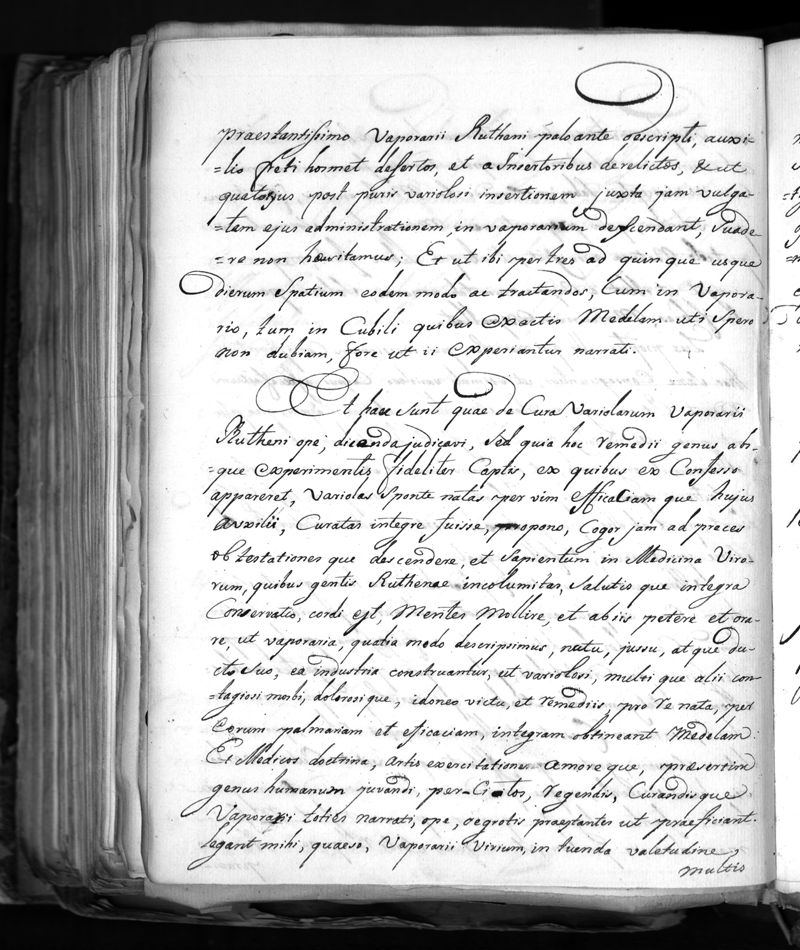 praestantissimo Vaporarii Rutheni paloante descripti, auxi-
=lio freti hosmet desertos, et a Insertoribus derelictos, & ut
quatosus post puris variolosi insertionem juxta jam vulga-
=tam ejus administrationem, in vaporarium descendant, Suade
=re non haesitamus; Et ut ibi per tres ad quinque usque
dierum Spatium eodem modo ac tractandos, Cum in Vapora-
rio, tum in Cubili quibus exactis Medelam uti Spero
non dubiam, fore ut ii experiantur narrati.
Et haec sunt quae de Cura Variolarum Vaporarii
Rutheni ope, dicenda judicavi, Sed quia hoc remedii genus abs-
=que experimentis fideliter Captis, ex quibus ex Confesso
appareret, Variolas Sponte natas per vim efficaciam que hujus
Auxilii, Curatas integre fuisse, propono, Cogor jam ad preces
obtestationes que descendere, et Sapientum in Medicina Viro-
rum, quibus gentis Ruthenae incolumitas, Salutis que integra
Conservatio, cordi est, Mentes Mollire, et ab iis petere et ora-
re, ut vaporaria, qualia modo descripsimus, nutu, jussu, atque du-
ctu Suo, ea industria construantur, ut variolosi, multi que alii con-
=tagiosi morbi, dolorosique, idoneo victu, et remediis, pro re nata, per
eorum palmariam et efficaciam, integram obtineant Medelam.
Et Medicos doctrina, Artis exercitatione Amore que, praesertim
genus humanum juvandi, per-Citos, regendis, Curandisque
Vaporarii toties narrati, ope, aegrotis praestantes ut praeficiant.
legant mihi, quaeso, Vaporarii Virium, in tuenda valetudine,
multis